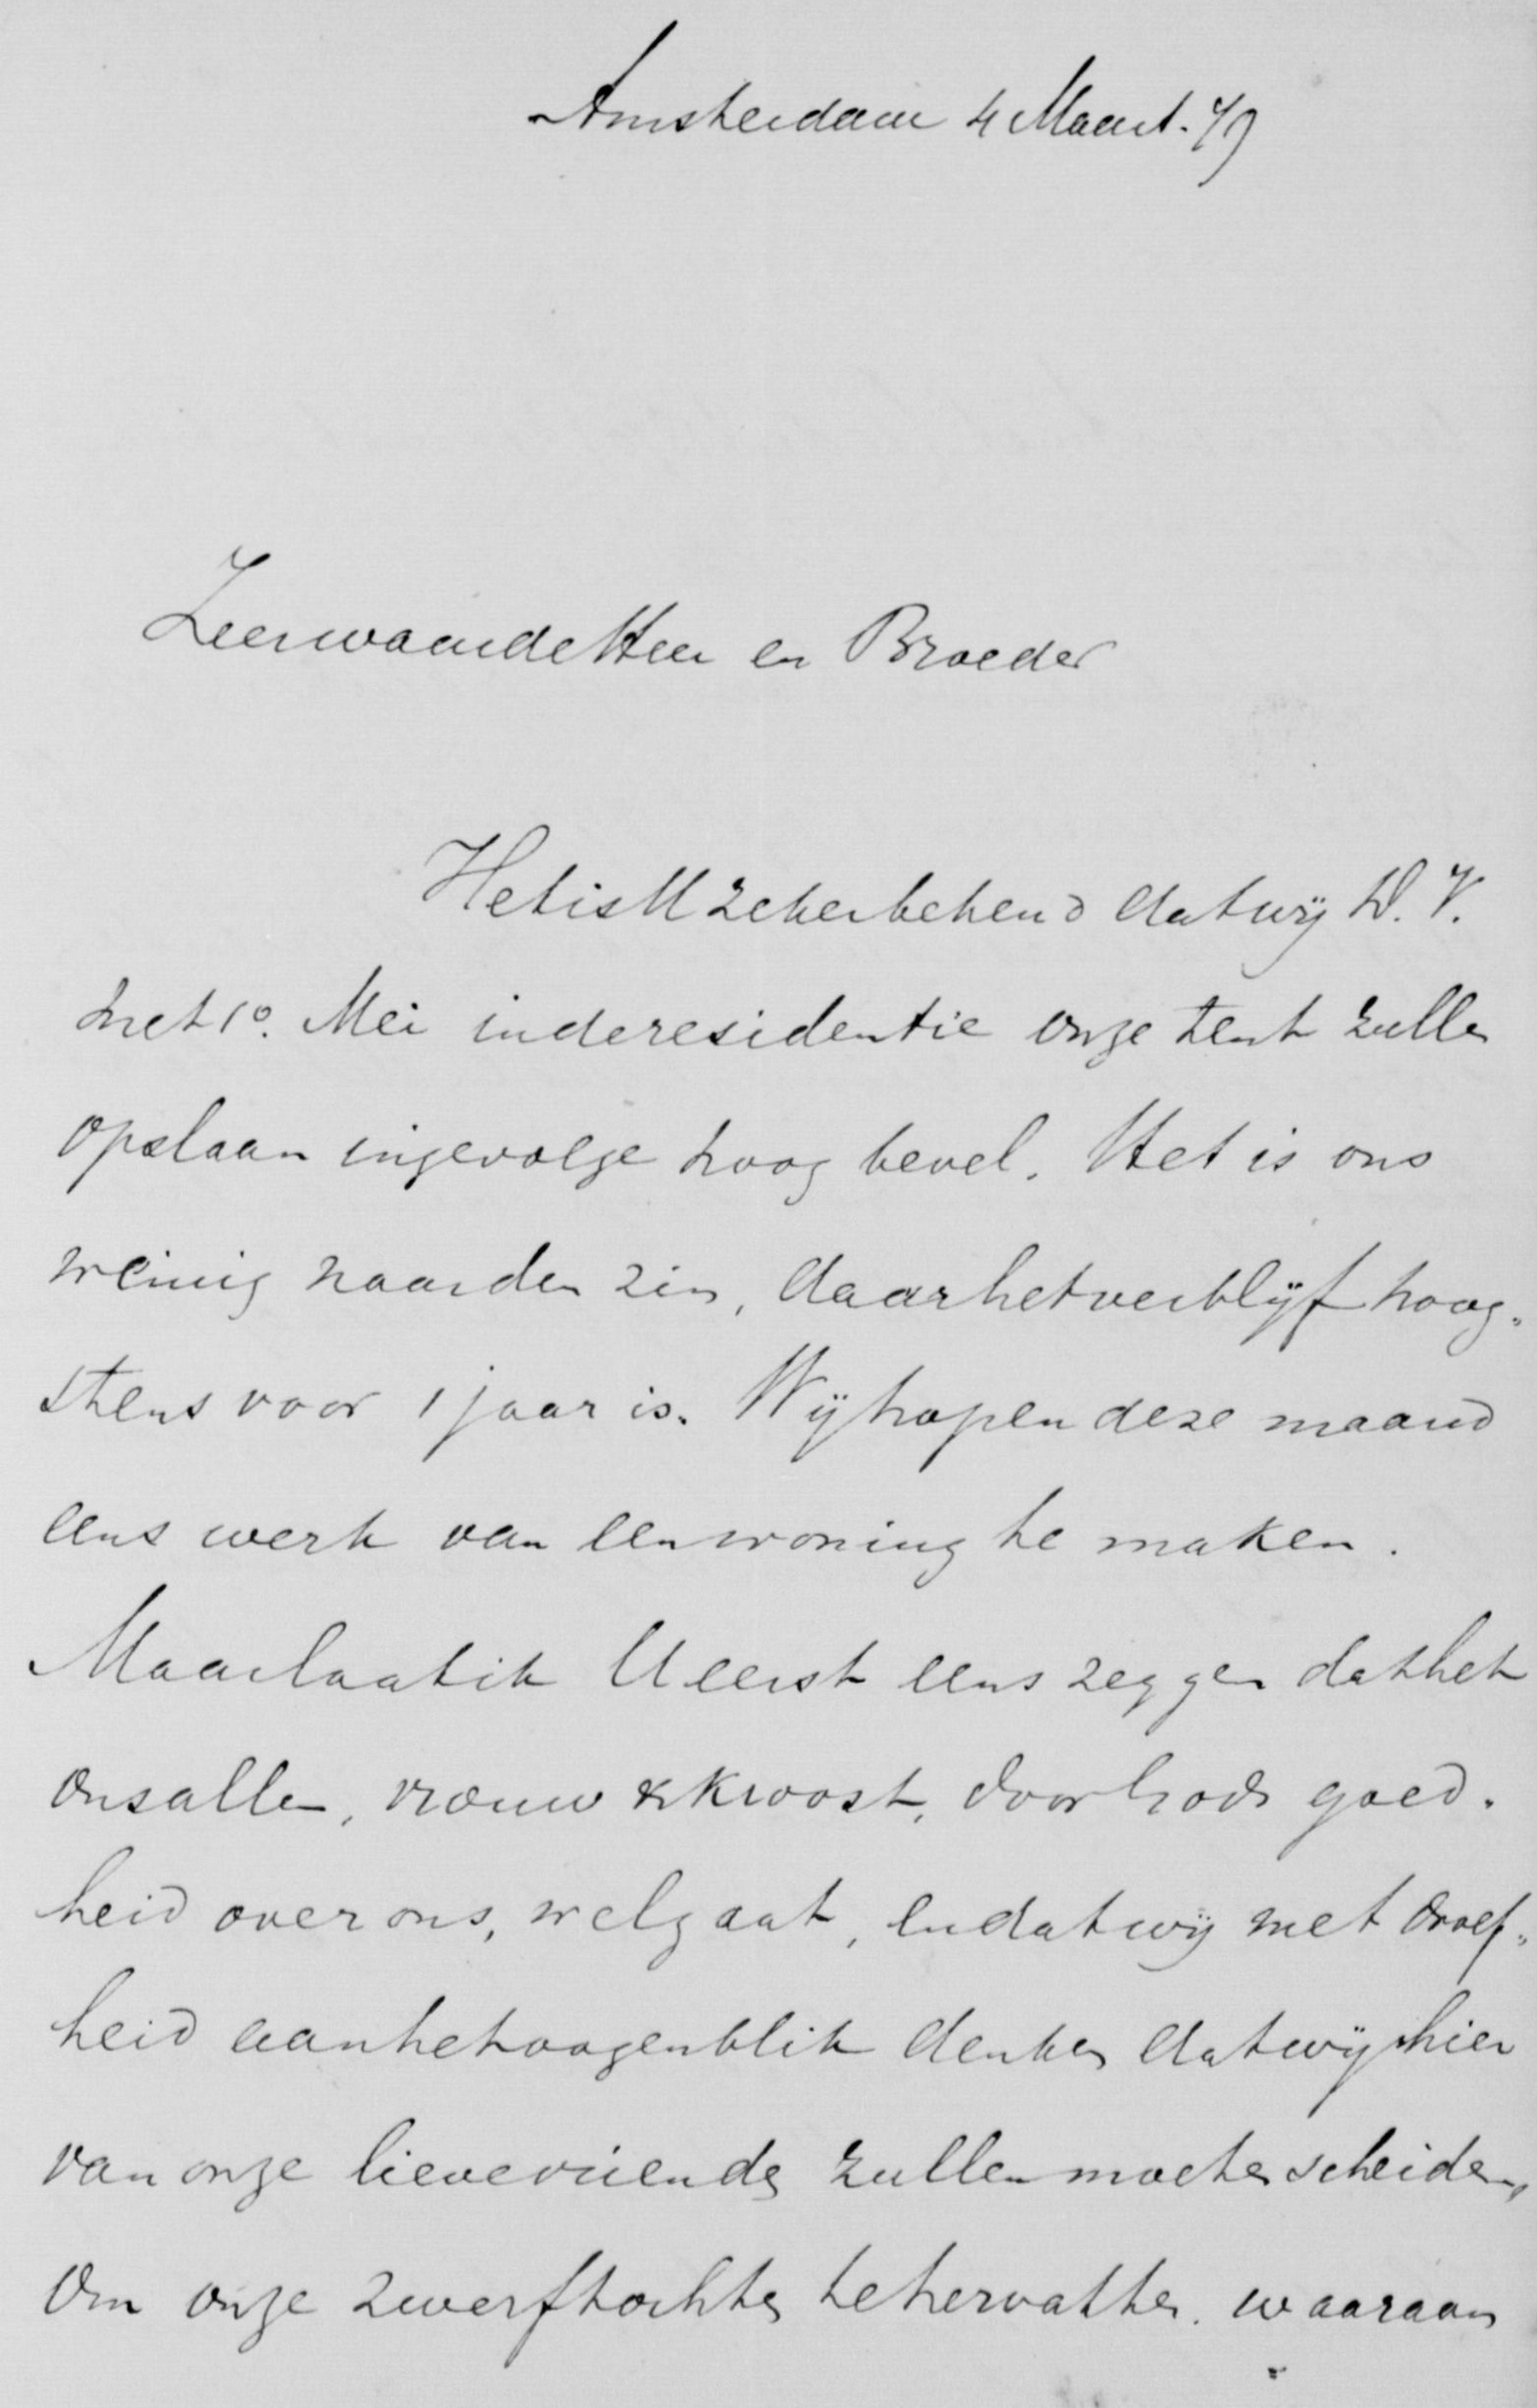 Amsterdam 4 Maart. 79
Zeerwaarde Heer en Broeder
Het is U zeker bekend dat wij D.V.
met 1o. Mei in de residentie onze tent zullen
opslaan ingevolge hoog bevel. Het is ons
weinig naar den zin, daar het verblijf hoog-
stens voor 1 jaar is. Wij hopen deze maand
eens werk van een woning te maken.
Maar laat ik U eerst eens zeggen dat het
ons allen, vrouw & kroost, door Gods goed-
heid over ons, wel gaat, en dat wij met droef-
heid aan het oogenblik denken dat wij hier
van onze lieve vrienden zullen moeten scheiden,
om onze zwerftochten te hervatten. waaraan